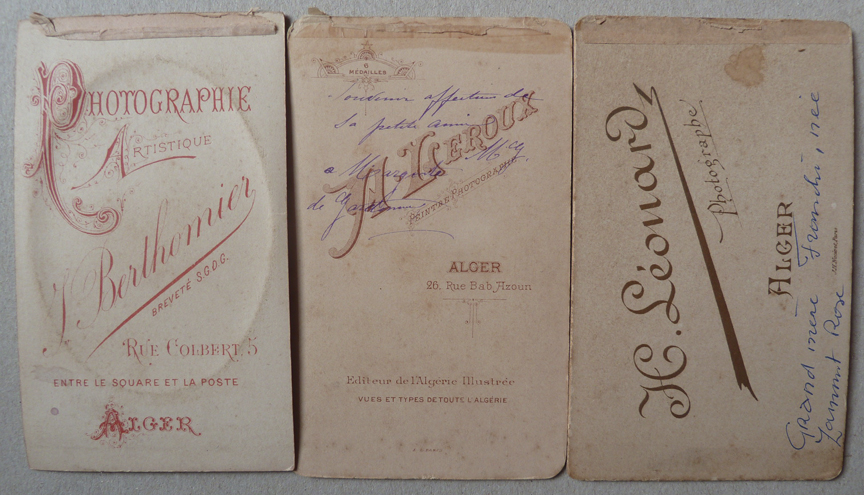 PHOTOGRAPHIE
ARTISTIQUE
J. Berthomier
BREVETÉ S.G.D.G.
RUE COLBERT, 5
ENTRE LE SQUARE ET LA POSTE
ALGER
6
MÉDAILLES
Souvenir affectueux de
Sa petite amie
A. LEROUX
a Marguerite
PEINTRE PHOTOGRAPHE
de
ALGER
26, Rue Bab Azoun
Editeur de l'Algérie Illustrée
VUES ET TYPES DE TOUTE L'ALGÉRIE
H. Léonard
Photographe
ALGER
Grand mère Franchi, née
Zammit Rose